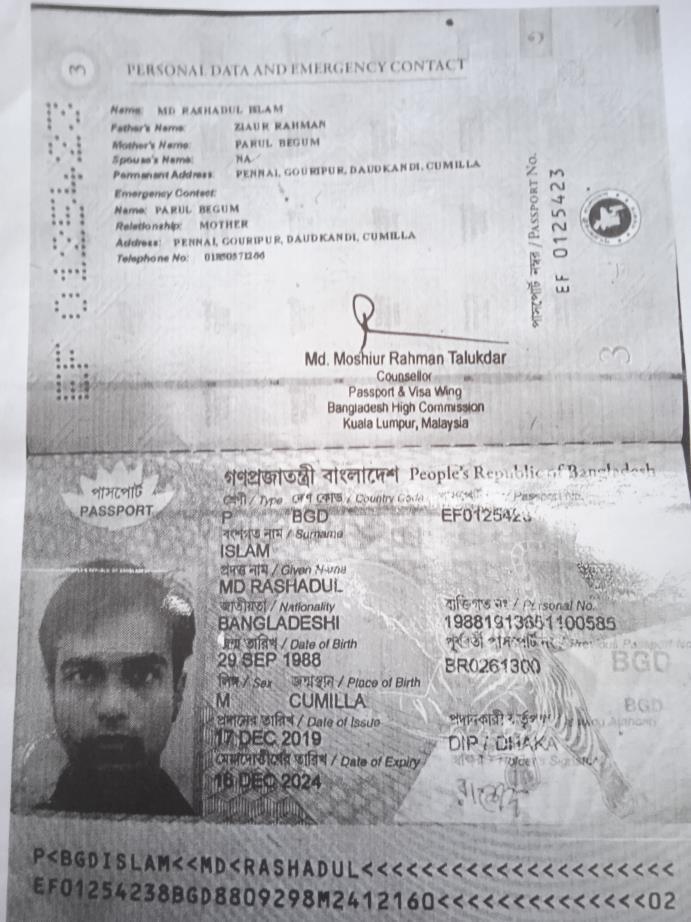 3
PERSONAL DATA AND EMERGENCY CONTACT
Name: MD RASHADUL ISLAM
Father's Name: ZIAUR RAHMAN
Mother's Name: PARUL BEGUM
Spouse's Name: NA
Permanent Address: PENNAI, GOURIPUR, DAUDKANDI, CUMILLA
Emergency Contact:
Name: PARUL BEGUM
Relationship: MOTHER
Address: PENNAI, GOURIPUR, DAUDKANDI, CUMILLA
Telephone No:
পাসপোর্ট নম্বর / PASSPORT No.
EF 0125423
3
Md. Moshiur Rahman Talukdar
Counsellor
Passport & Visa Wing
Bangladesh High Commission
Kuala Lumpur, Malaysia
গণপ্রজাতন্ত্রী বাংলাদেশ People's Republic of Bangladesh
পাসপোর্ট
PASSPORT
শ্রেণী / Type দেশ কোড / Country Code Passport No.
P BGD EF0125423
বংশগত নাম / Surname
ISLAM
প্রদত্ত নাম / Given Name
MD RASHADUL
জাতীয়তা / Nationality ব্যক্তিগত নং / Personal No.
BANGLADESHI 19881913651100585
জন্ম তারিখ / Date of Birth পূর্ববর্তী পাসপোর্ট নং / Previous Passport No
29 SEP 1988 BR0261300
BGD
লিঙ্গ / Sex জন্মস্থান / Place of Birth
M CUMILLA
BGD
প্রদানের তারিখ / Date of Issue
17 DEC 2019 DIP / DHAKA
মেয়াদোত্তীর্ণের তারিখ / Date of Expiry
16 DEC 2024
P<BGDISLAM<<MD<RASHADUL<<<<<<<<<<<<<<<<<<<<<
EF01254238BGD8809298M2412160<<<<<<<<<<<<<<02